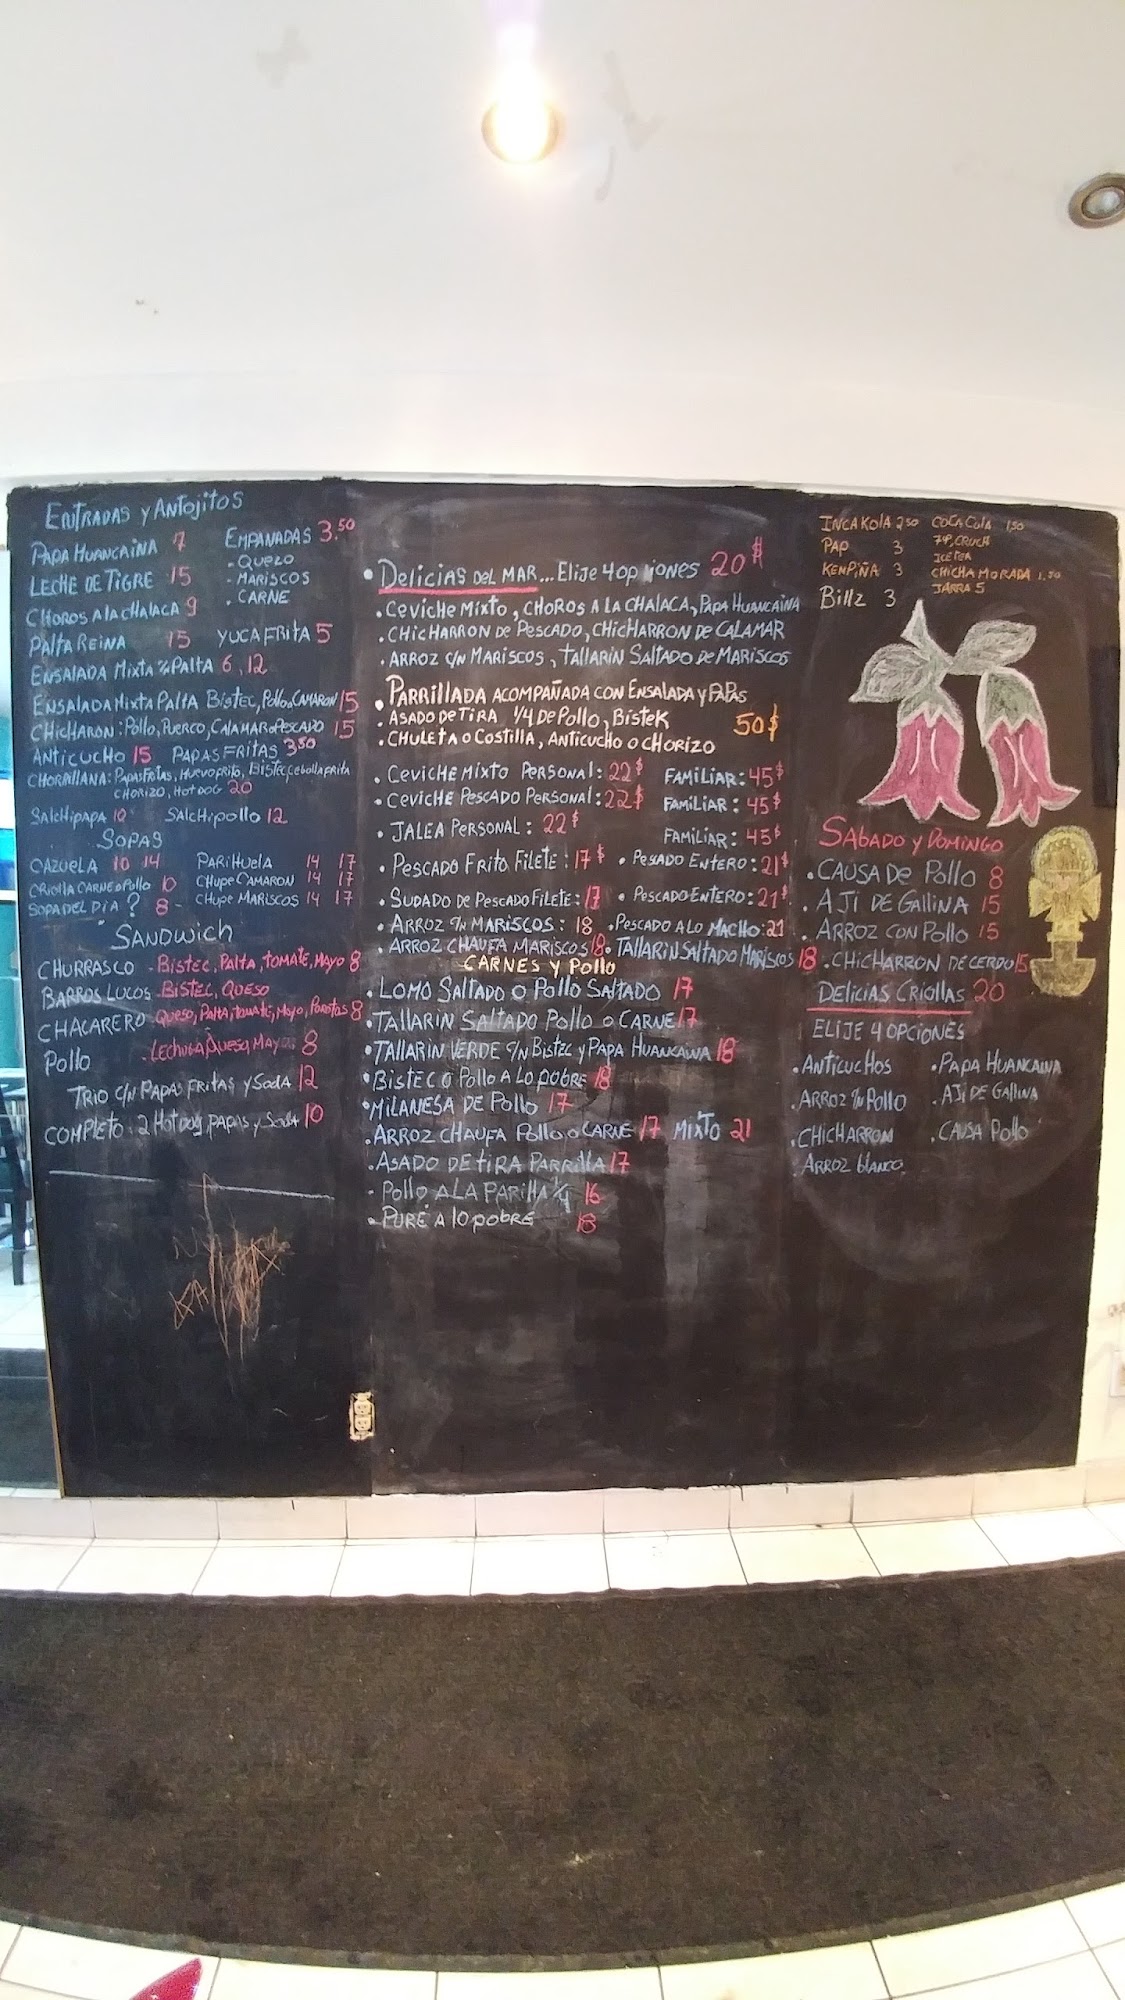 ENTRADAS y ANTOJITOS
PAPA HUANCAINA 7
LECHE DE TIGRE 15
CHOROS A la CHALACA 9
PALTA REINA 15
EMPANADAS 3.50
- QUEZO
- MARISCOS
- CARNE
YUCA FRITA 5
ENSALADA MIXTA % PALTA 6, 12
ENSALADA MIXTA PALTA BISTEC, Pollo, CAMARON 15
CHICHARON: Pollo, PUERCO, CALAMAR o PESCADO 15
ANTICUCHO 15 PAPAS FRITAS 3.50
CHORRILLANA: PAPAS FRITAS, HUEVO FRITO, BISTEC, cebolla frita
CHORIZO, HOT DOG 20
SALCHIPAPA 10 SALCHIPOLLO 12
SOPAS
CAZUELA 10 14
CRIOLLA CARNE o Pollo 10
SOPA DEL DIA ? 8
PARIHUELA 14 17
CHUPE CAMARON 14 17
CHUPE MARISCOS 14 17
SANDWICH
CHURRASCO - BISTEC, PALTA, TOMATE, MAYO 8
BARROS LUCOS - BISTEC, QUESO
CHACARERO - QUESO, PALTA, TOMATE, MAYO, POROTOS 8
Pollo - LECHUGA, QUESO, MAYO 8
TRIO C/N PAPAS FRITAS y SODA 12
COMPLETO: 2 HOT DOG PAPAS y SODA 10
• DELICIAS DEL MAR... ELIJE 4 opciones 20$
• CEVICHE MIXTO, CHOROS A LA CHALACA, PAPA HUANCAINA
• CHICHARRON DE PESCADO, CHICHARRON DE CALAMAR
• ARROZ C/N MARISCOS, TALLARIN SALTADO DE MARISCOS
• PARRILLADA ACOMPAÑADA CON ENSALADA y PAPAS
• ASADO DE TIRA 1/4 DE POLLO, BISTEK 50$
• CHULETA o COSTILLA, ANTICUCHO o CHORIZO
• CEVICHE MIXTO PERSONAL: 22$ FAMILIAR: 45$
• CEVICHE PESCADO PERSONAL: 22$ FAMILIAR: 45$
• JALEA PERSONAL: 22$ FAMILIAR: 45$
• PESCADO FRITO FILETE: 17$ • PESCADO ENTERO: 21$
• SUDADO DE PESCADO FILETE: 17 • PESCADO ENTERO: 21$
• ARROZ C/N MARISCOS: 18 • PESCADO A LO MACHO: 21
• ARROZ CHAUFA MARISCOS 18 • TALLARIN SALTADO MARISCOS 18
CARNES y POLLO
• LOMO SALTADO o POLLO SALTADO 17
• TALLARIN SALTADO POLLO o CARNE 17
• TALLARIN VERDE C/N BISTEC y PAPA HUANCAINA 18
• BISTEC o POLLO A LO POBRE 18
• MILANESA DE POLLO 17
• ARROZ CHAUFA POLLO o CARNE 17 MIXTO 21
• ASADO DE TIRA PARRILLA 17
- POLLO A LA PARILLA 1/4 16
• PURE A lo pobre 18
INCA KOLA 2.50
PAP 3
KEN PIÑA 3
Billz 3
COCA COLA 1.50
7UP, CRUCH
ICE TEA
CHICHA MORADA 1.50
JARRA 5
SABADO y DOMINGO
• CAUSA DE POLLO 8
• AJI DE GALLINA 15
• ARROZ CON POLLO 15
• CHICHARRON DE CERDO 15
DELICIAS CRIOLLAS 20
ELIJE 4 OPCIONES
• ANTICUCHOS • PAPA HUANCAINA
• ARROZ C/N POLLO • AJI DE GALLINA
• CHICHARRON • CAUSA POLLO
ARROZ blanco